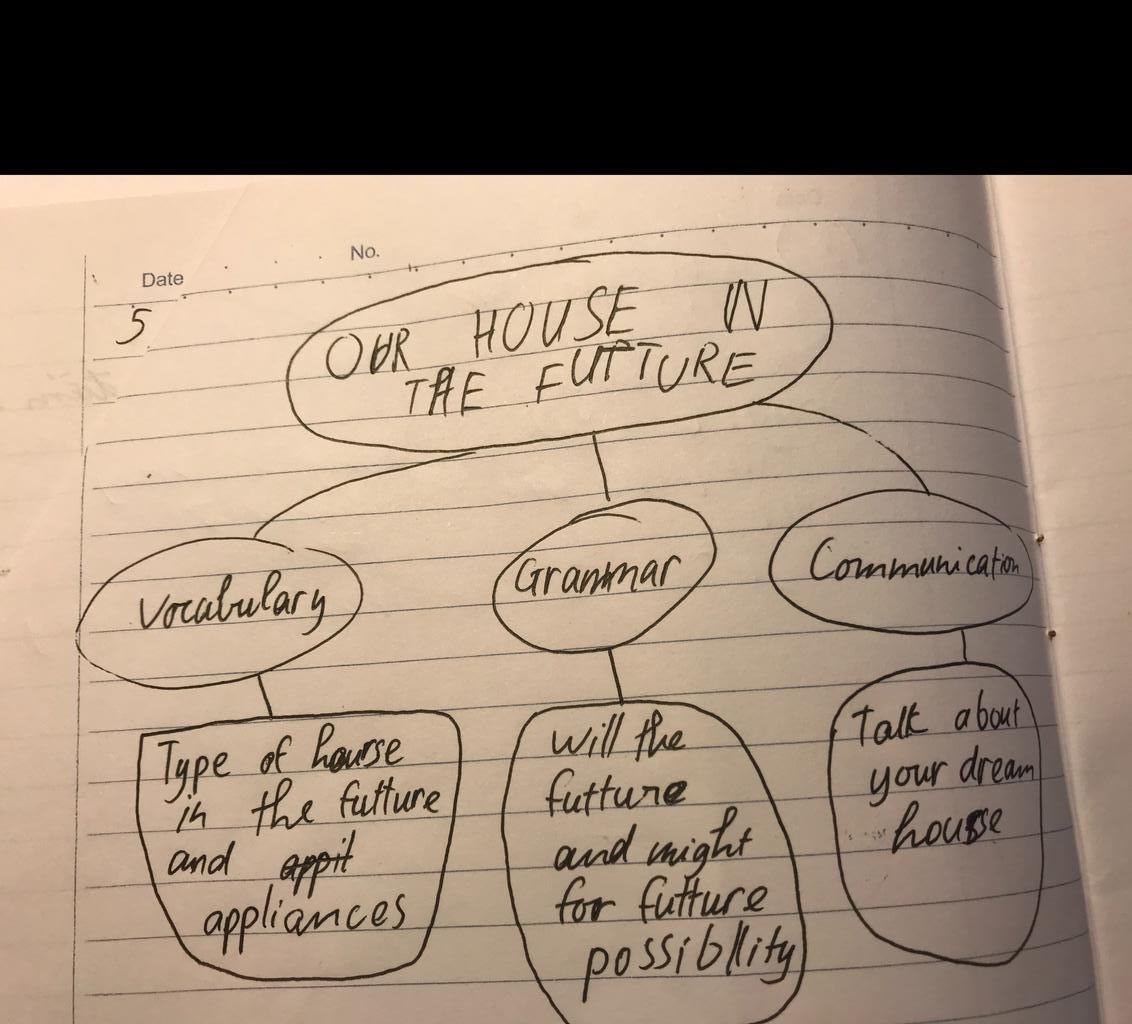 No.
Date
5
OUR HOUSE IN
THE FUTTURE
Vocabulary
Grammar
Communication
Type of hourse
in the futture
and appit
appliances
will the
futture
and might
for futture
possibllity
Talk about
your dream
house